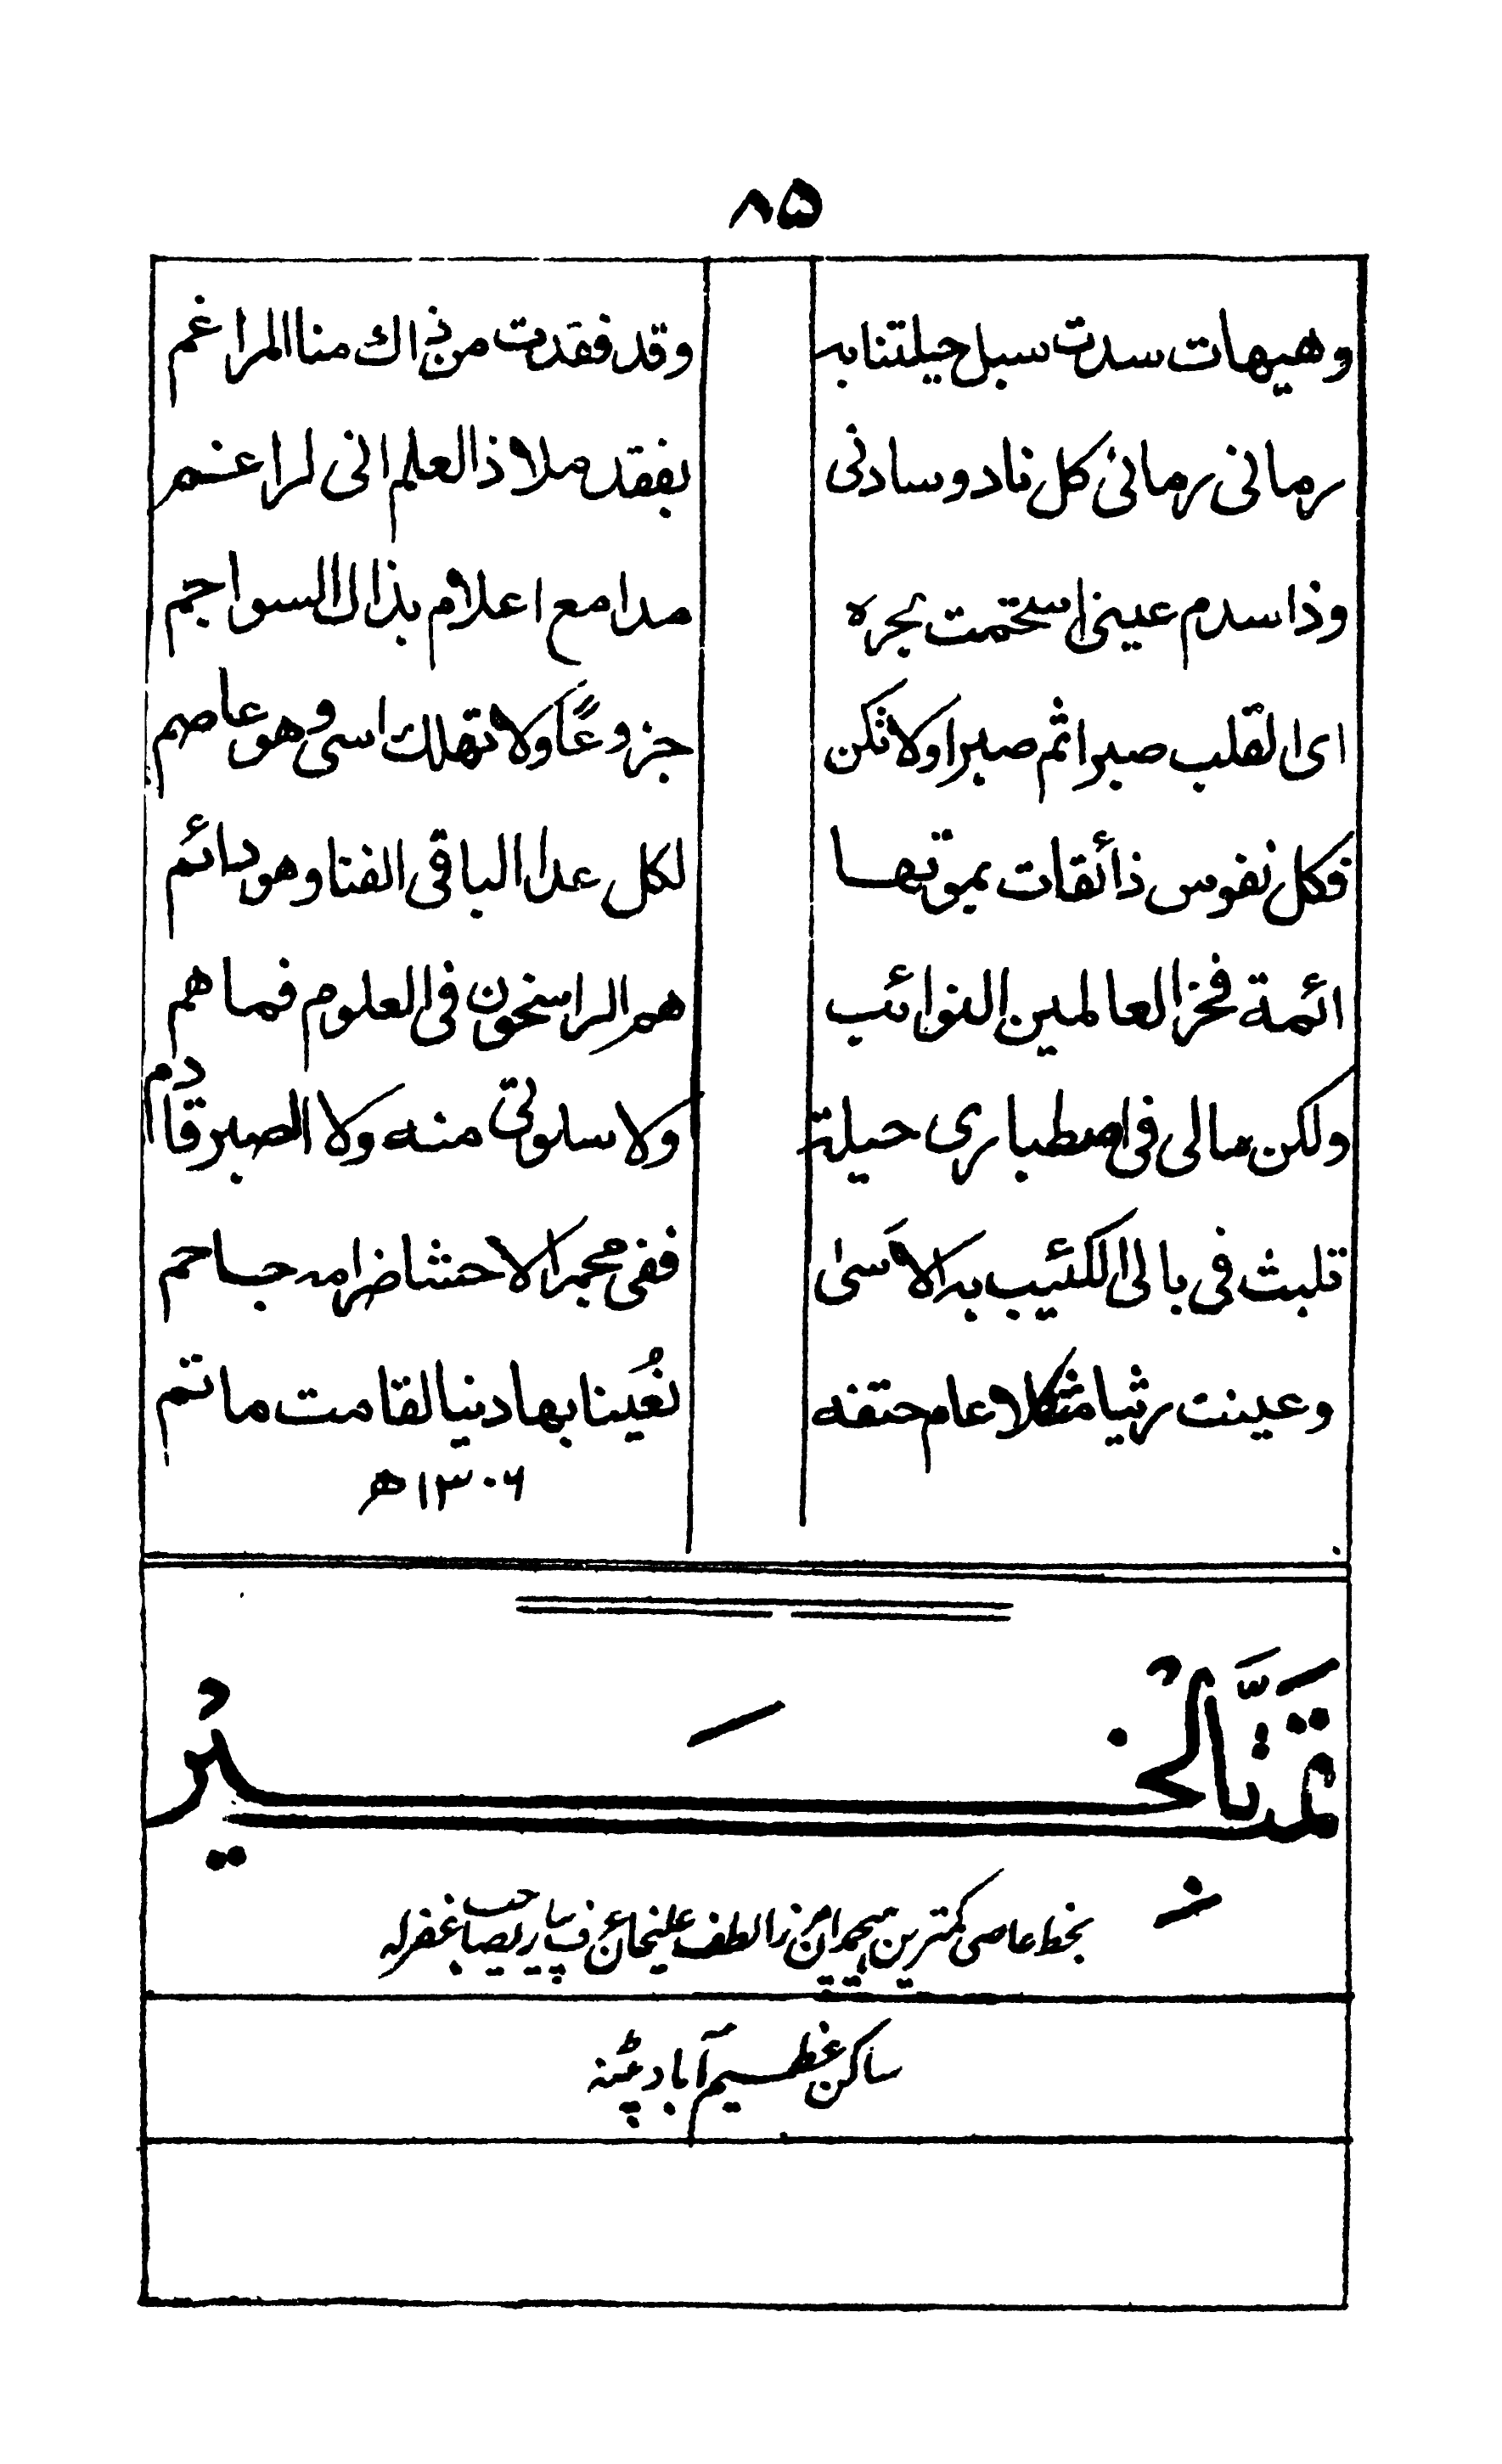 ٨٥
وهيهات سدت سبل حيلتنا به
وقد فقدت من ذاك منا المراغم
رمانى رمانى كل ناد وسادنى
بفقد ملاذ العلم انى لراغم
وذا سدم عينى استحمت بجره
مدامع اعلام بذال السواجم
اى القلب صبرا ثم صبرا ولا تكن
جزوعًا ولا تهلك اسى وهو عاصم
فكل نفوس ذائقات بموتها
لكل عدا الباقى الفنا وهو دائم
ائمة فخر العالمين النوائب
هم الراسخون فى العلوم فما هم
ولكن مالى فى اصطبارى حيلة
ولا سلوتى منه ولا الصبر قادم
تلبث فى بالى الكئيب به الاسى
ففى مجمر الاحشا ضرامه جاحم
وعينت رثيا مثكلا عام حتفه
نُعَينا بها دنيا لقامت ماتم
١٣٠٦ ھ
تمَّت بالخَيْر
بخط عاصى كمترين ہیچمدان مرزا لطف عليخان عرف پیارے صاحب غفرله
ساكن عظيم آباد پٹنہ